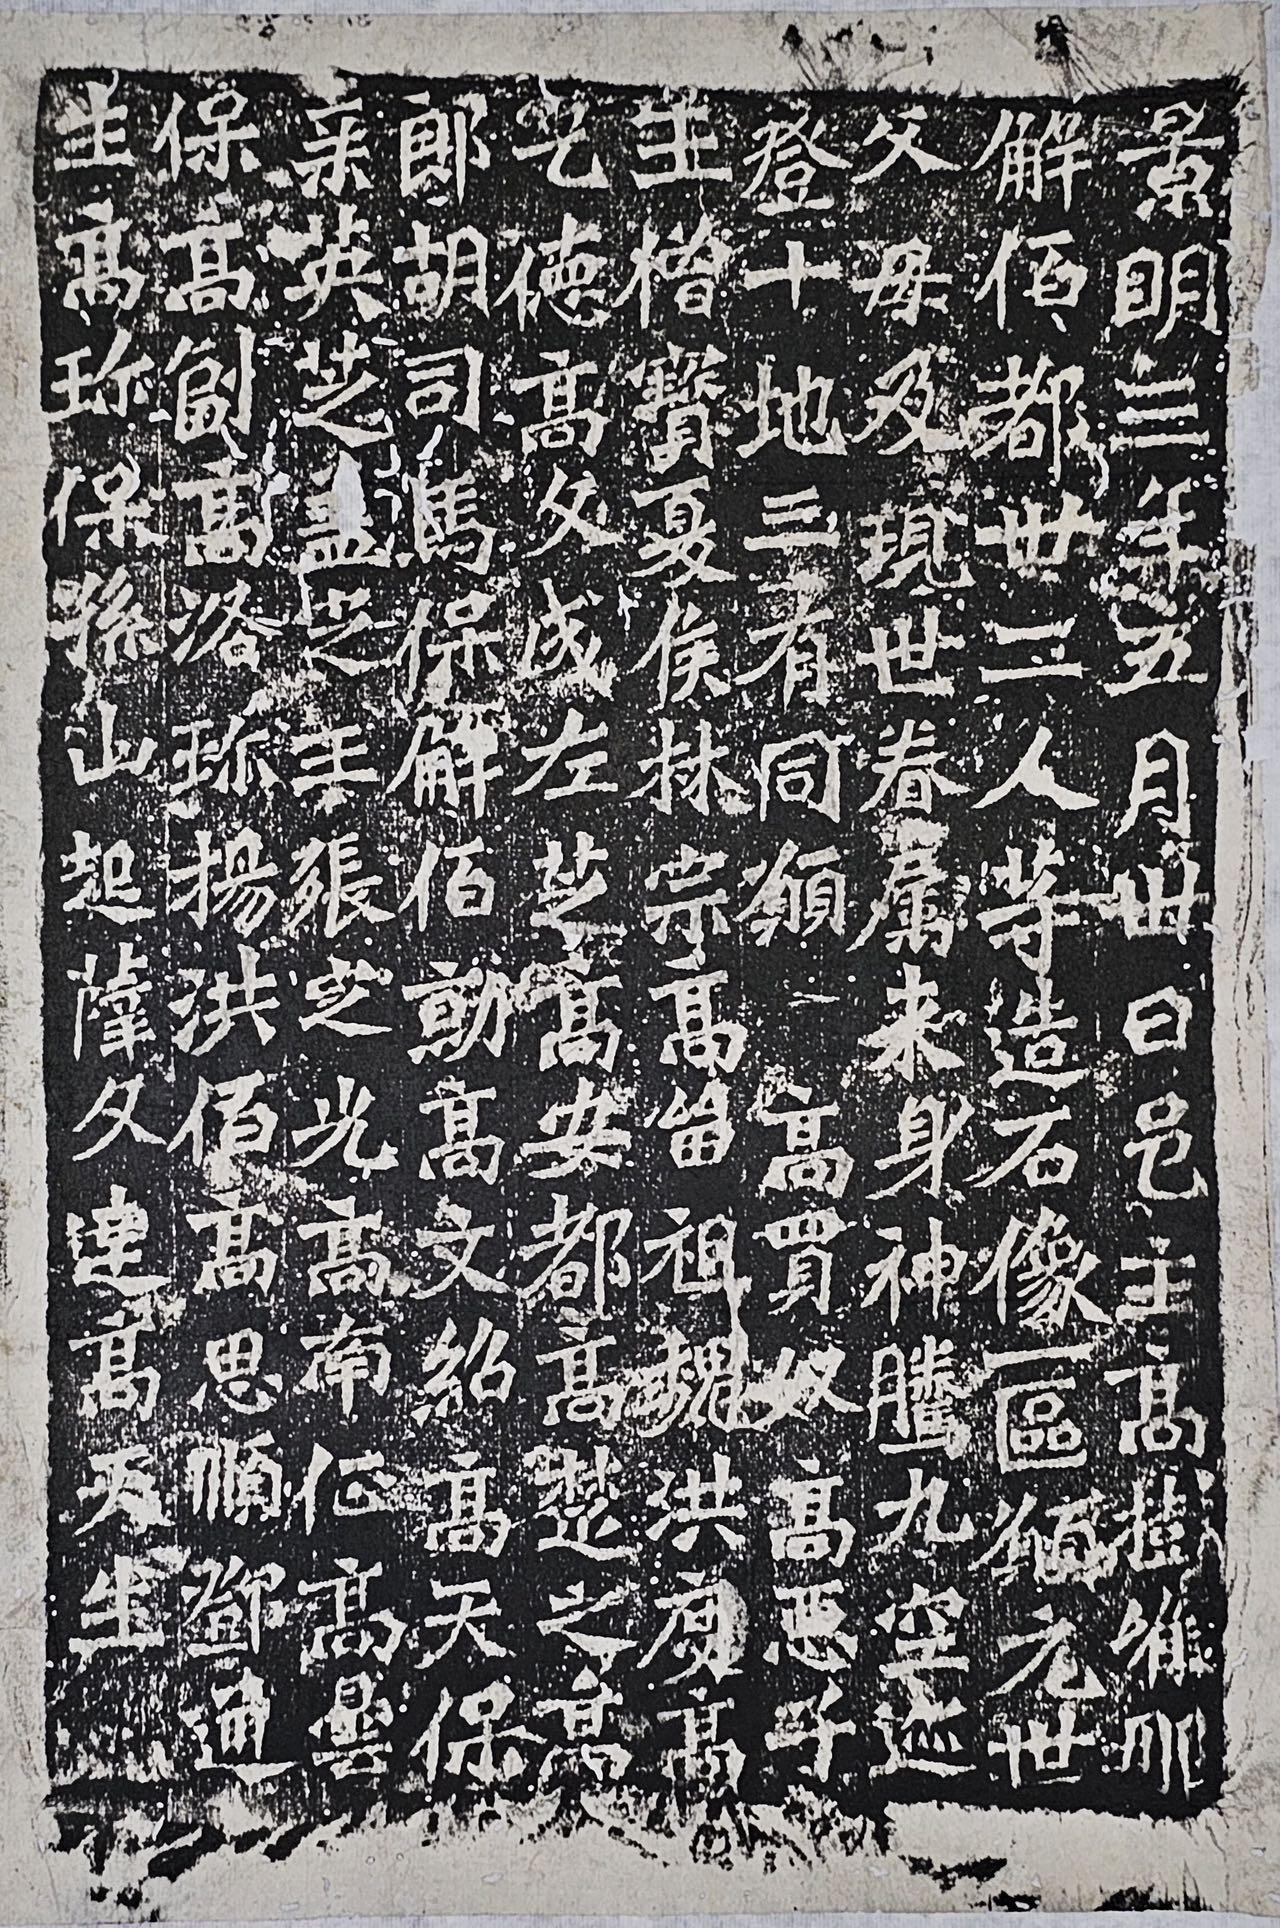 景明三年五月卅日邑主高樹唯那
解佰都卅二人等造石像一區願元世
父母及現世眷属来身神騰九空迹
登十地三有同願高買奴高惡子
王僧寶夏侯林宗高留祖魏洪度高
乞德高文成左芝高安都高楚之高
郎胡司馬保解佰勛高文紹高天保
枲英芝盖芝王張芝光高南仁高曇
保高副高洛珎楊洪佰高思順鄧通
生高珎保孫山起薩文達高天生